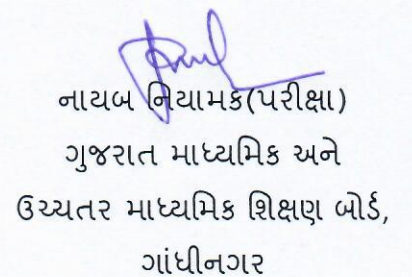 નાયબ નિયામક(પરીક્ષા)
ગુજરાત માધ્યમિક અને
ઉચ્ચતર માધ્યમિક શિક્ષણ બોર્ડ,
ગાંધીનગર